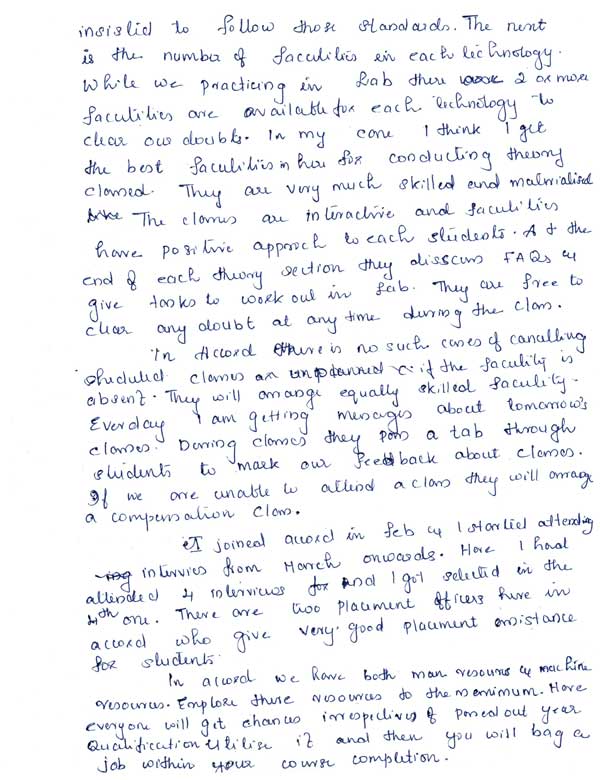 insisted to follow those standards. The next
is the number of faculities in each technology.
While we practicing in Lab there 2 or more
faculities are available for each technology to
clear our doubts. In my case I think I get
the best faculities in here for conducting theory
classed. They are very much skilled and materialised
The classes are interactive and faculities
have positive approch to each students. At the
end of each theory section they disscuss FAQs &
give tasks to work out in Lab. They are free to
clear any doubt at any time during the class.
In Accord there is no such cases of cancelling
sheduled classes an unplanned if the faculity is
absent. They will arrange equally skilled faculity.
Everday I am getting messages about tomorrow's
classes. During classes they pass a tab through
students to mark our feedback about classes.
If we are unable to attend a class they will arrage
a compensation class.
I joined accord in feb & I started attending
intervies from March onwards. Here I had
attended 4 interviews and I got selected in the
4th one. There are two placement officers here in
accord who give very good placement assistance
for students.
In accord we have both man resourses & machine
resources. Explore those resources to the maximum. Here
everyone will get chances irrespectives of passed out year
Qualification Utilise it and then you will bag a
job within your course completion.